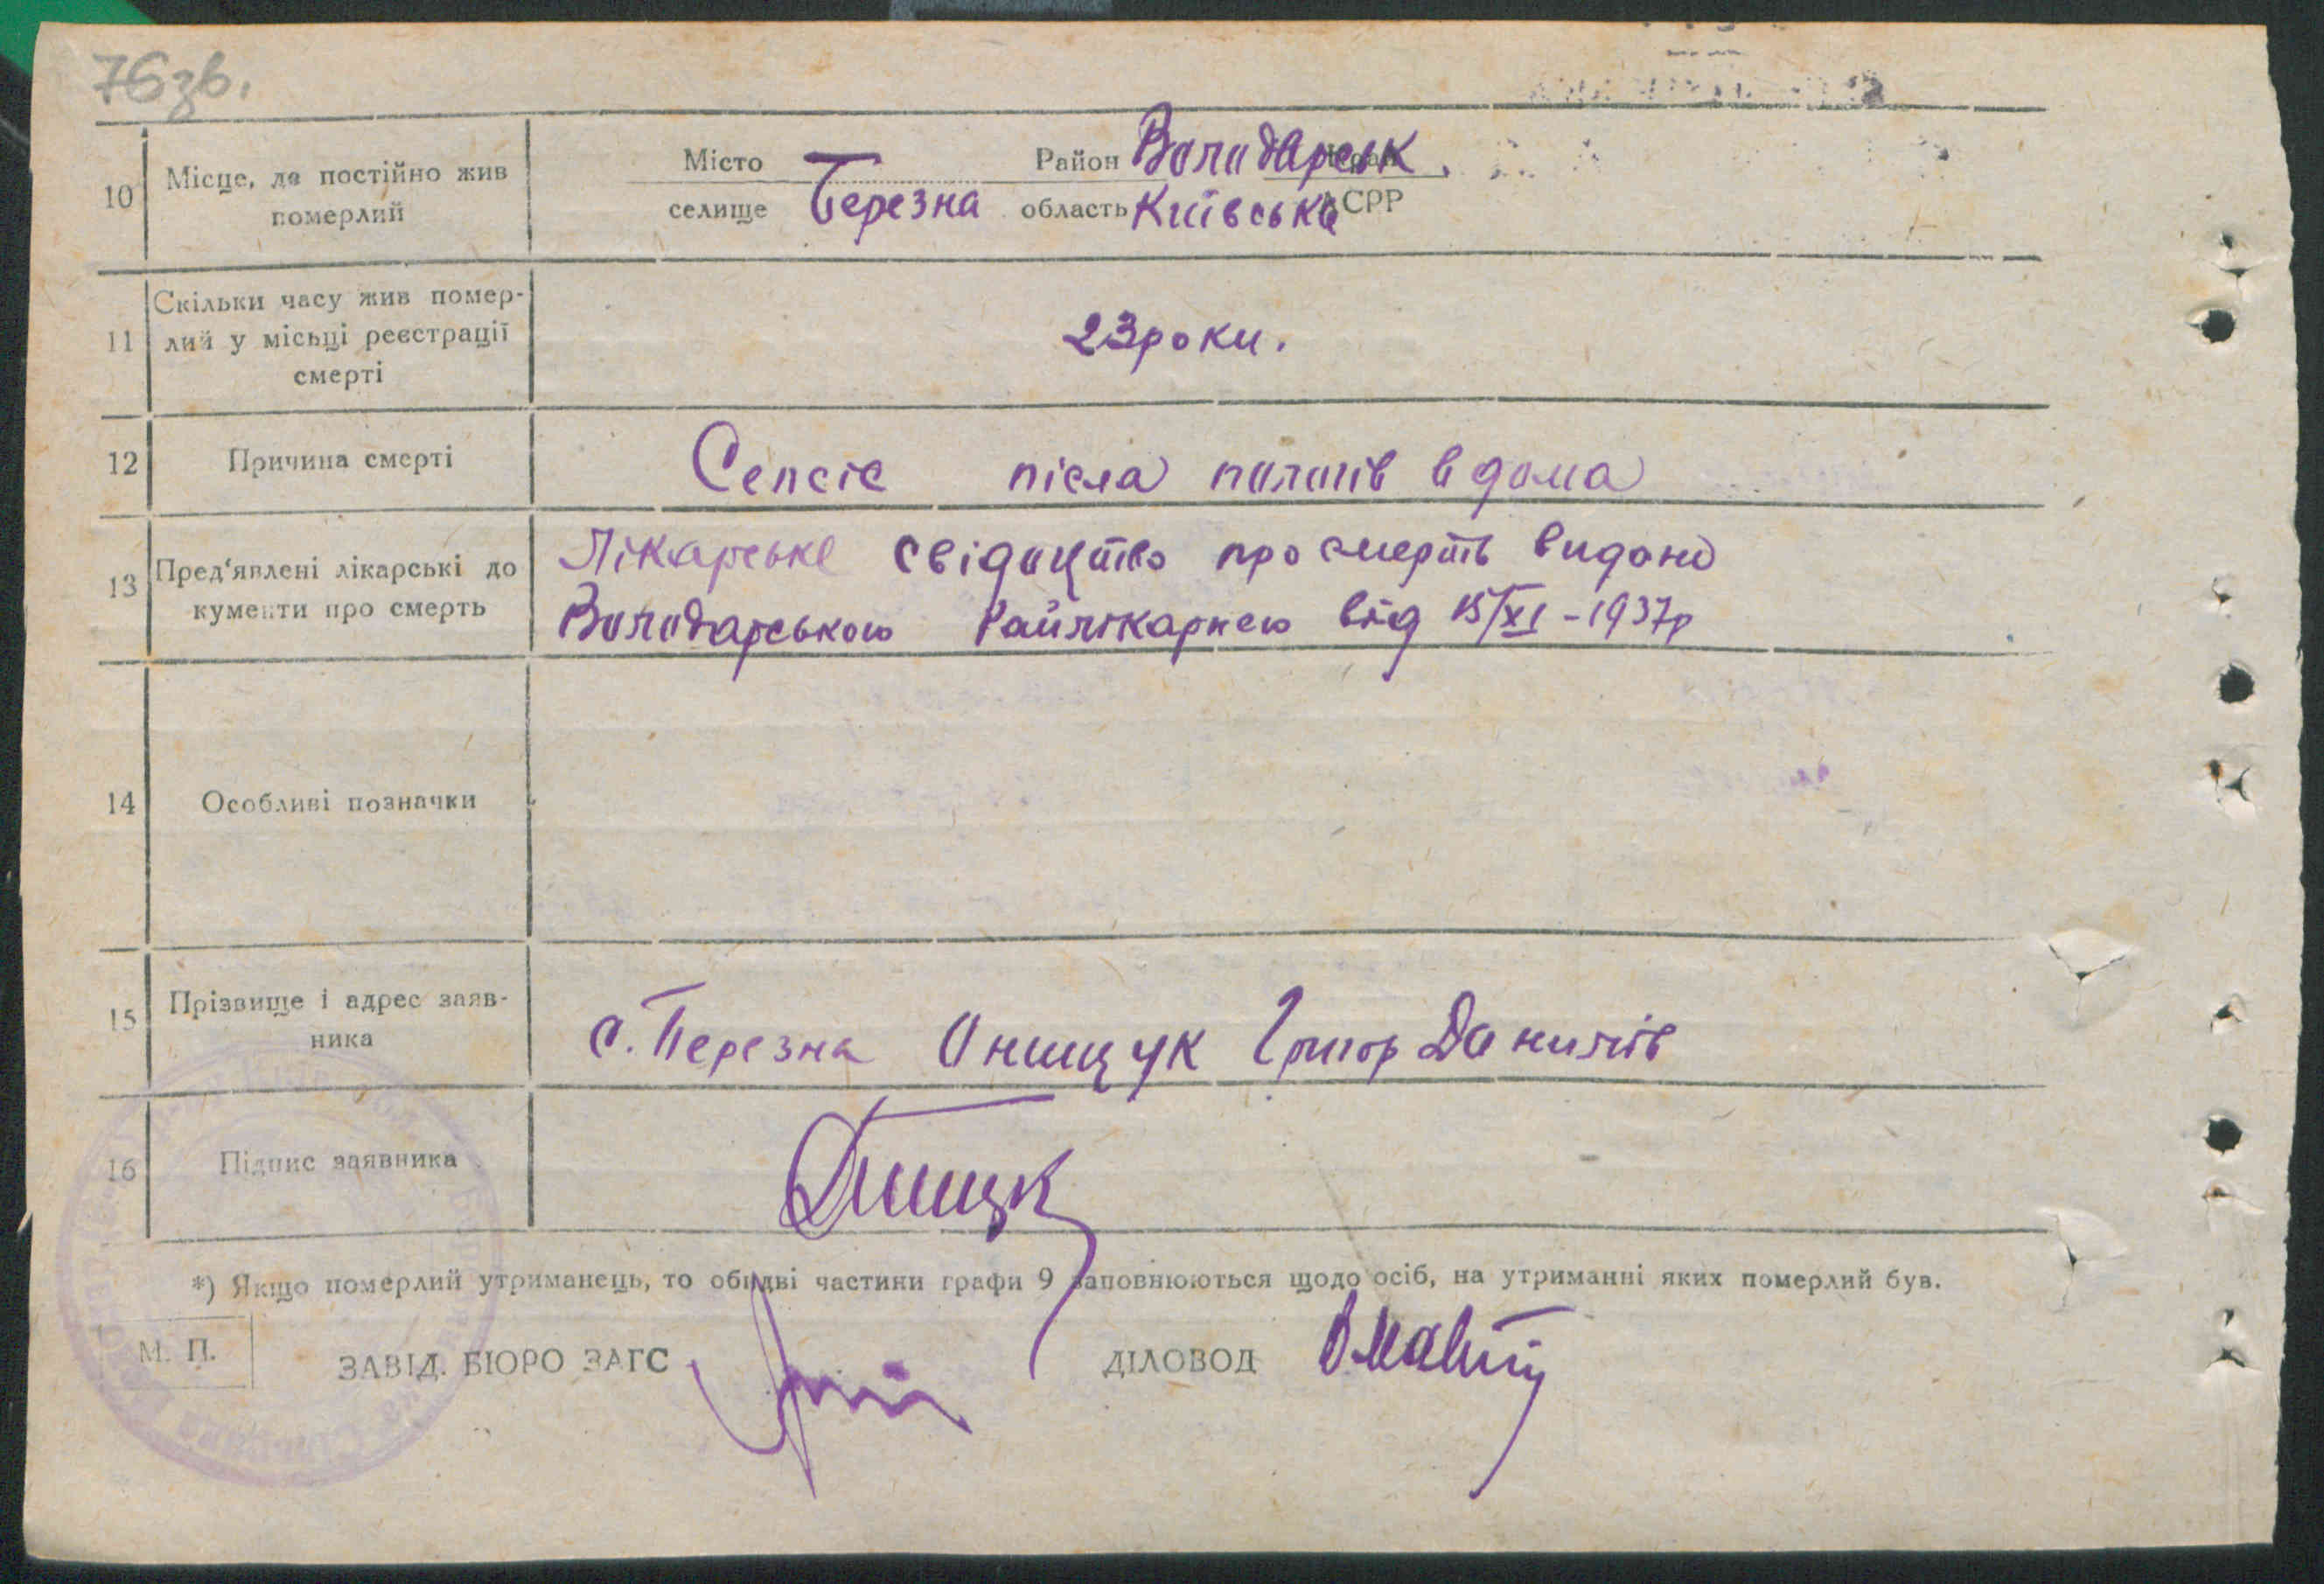 76зв.
10 Місце, де постійно жив померлий
Місто Район Володарськ.
селище Березна область Київська АСРР
11 Скільки часу жив помер-
лий у місьці реєстрації
смерті
23 роки.
12 Причина смерті
Сепсіс після пологів вдома
13 Пред'явлені лікарські до
кументи про смерть
Лікарське свідоцтво про смерть видано
Володарською Райлікарнею від 15/XI - 1937р
14 Особливі позначки
15 Прізвище і адрес заяв-
ника
с. Березна Онищук Григор Данилів
16 Підпис заявника
*) Якщо померлий утриманець, то обидві частини графи 9 заповнюються щодо осіб, на утриманні яких померлий був.
М. П.
ЗАВІД. БЮРО ЗАГС
ДІЛОВОД